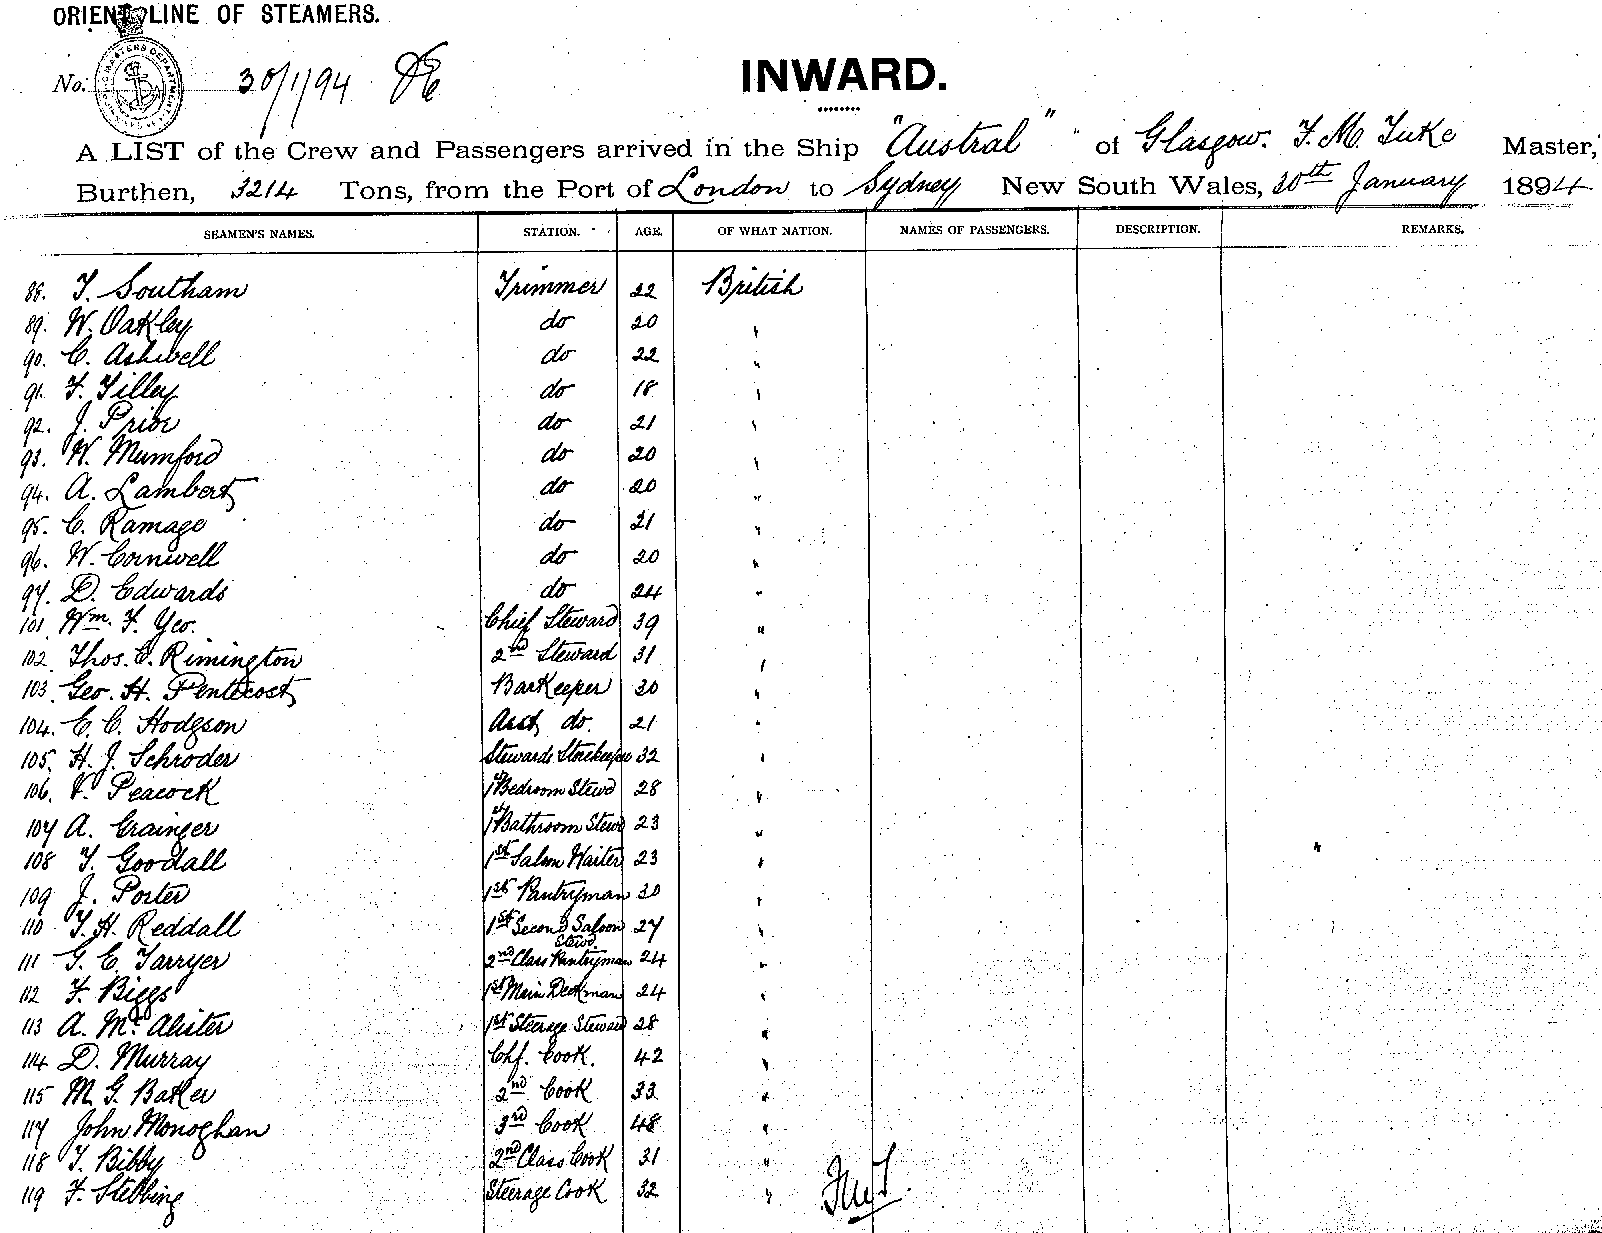 ORIENT LINE OF STEAMERS.
No. 30/1/94
INWARD.
A LIST of the Crew and Passengers arrived in the Ship "Austral" of Glasgow. F. M. Tuke Master,
Burthen, 3214 Tons, from the Port of London to Sydney New South Wales, 30th January 1894
SEAMEN'S NAMES. STATION. AGE. OF WHAT NATION. NAMES OF PASSENGERS. DESCRIPTION. REMARKS.
88. T. Southam Trimmer 22 British
89. W. Oakley do 20 "
90. C. Ashwell do 22 "
91. F. Tilley do 18 "
92. J. Prior do 21 "
93. W. Mumford do 20 "
94. A. Lambert do 20 "
95. C. Ramage do 21 "
96. W. Cornwell do 20 "
97. D. Edwards do 24 "
101. Wm. F. Yeo. Chief Steward 39 "
102. Thos. C. Rimington 2nd Steward 31 "
103. Geo. H. Pentecost Barkeeper 30 "
104. E. C. Hodgson Asst do. 21 "
105. H. J. Schroder Stewards Storekeeper 32 "
106. V. Peacock 1st Bedroom Stewd 28 "
107 A. Grainger 1st Bathroom Stewd 23 "
108 T. Goodall 1st Saloon Waiter 23 "
109 J. Porter 1st Pantryman 30 "
110 T. H. Reddall 1st Second Saloon Stewd 27 "
111 G. E. Tarryer 2nd Class Pantryman 24 "
112 F. Biggs 1st Main Deckman 24 "
113 A. Mc. Alister 1st Steerage Steward 28 "
114 D. Murray Chf. Cook. 42 "
115 M. G. Baker 2nd Cook 33 "
117 John Monoghan 3rd Cook 48 "
118 T. Bibby 2nd Class Cook 31 "
119 F. Stebbing Steerage Cook 32 "
FMT.